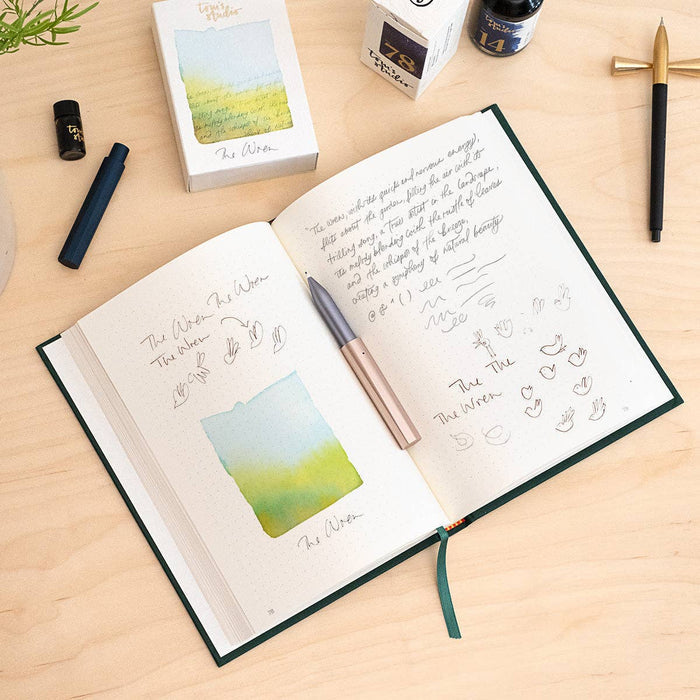 tom's
studio
The Wren
78
tom's
studio
tom's
studio
14
tom's
studio
"The wren, with its quick and nervous energy,
flits about the garden, filling the air with its
trilling song, a true artist in the landscape,
its melody blending with the rustle of leaves
and the whisper of the breeze,
creating a symphony of natural beauty
@ & * ( )
The Wren The Wren
The Wren
The Wren
78
The The
The Wren
79